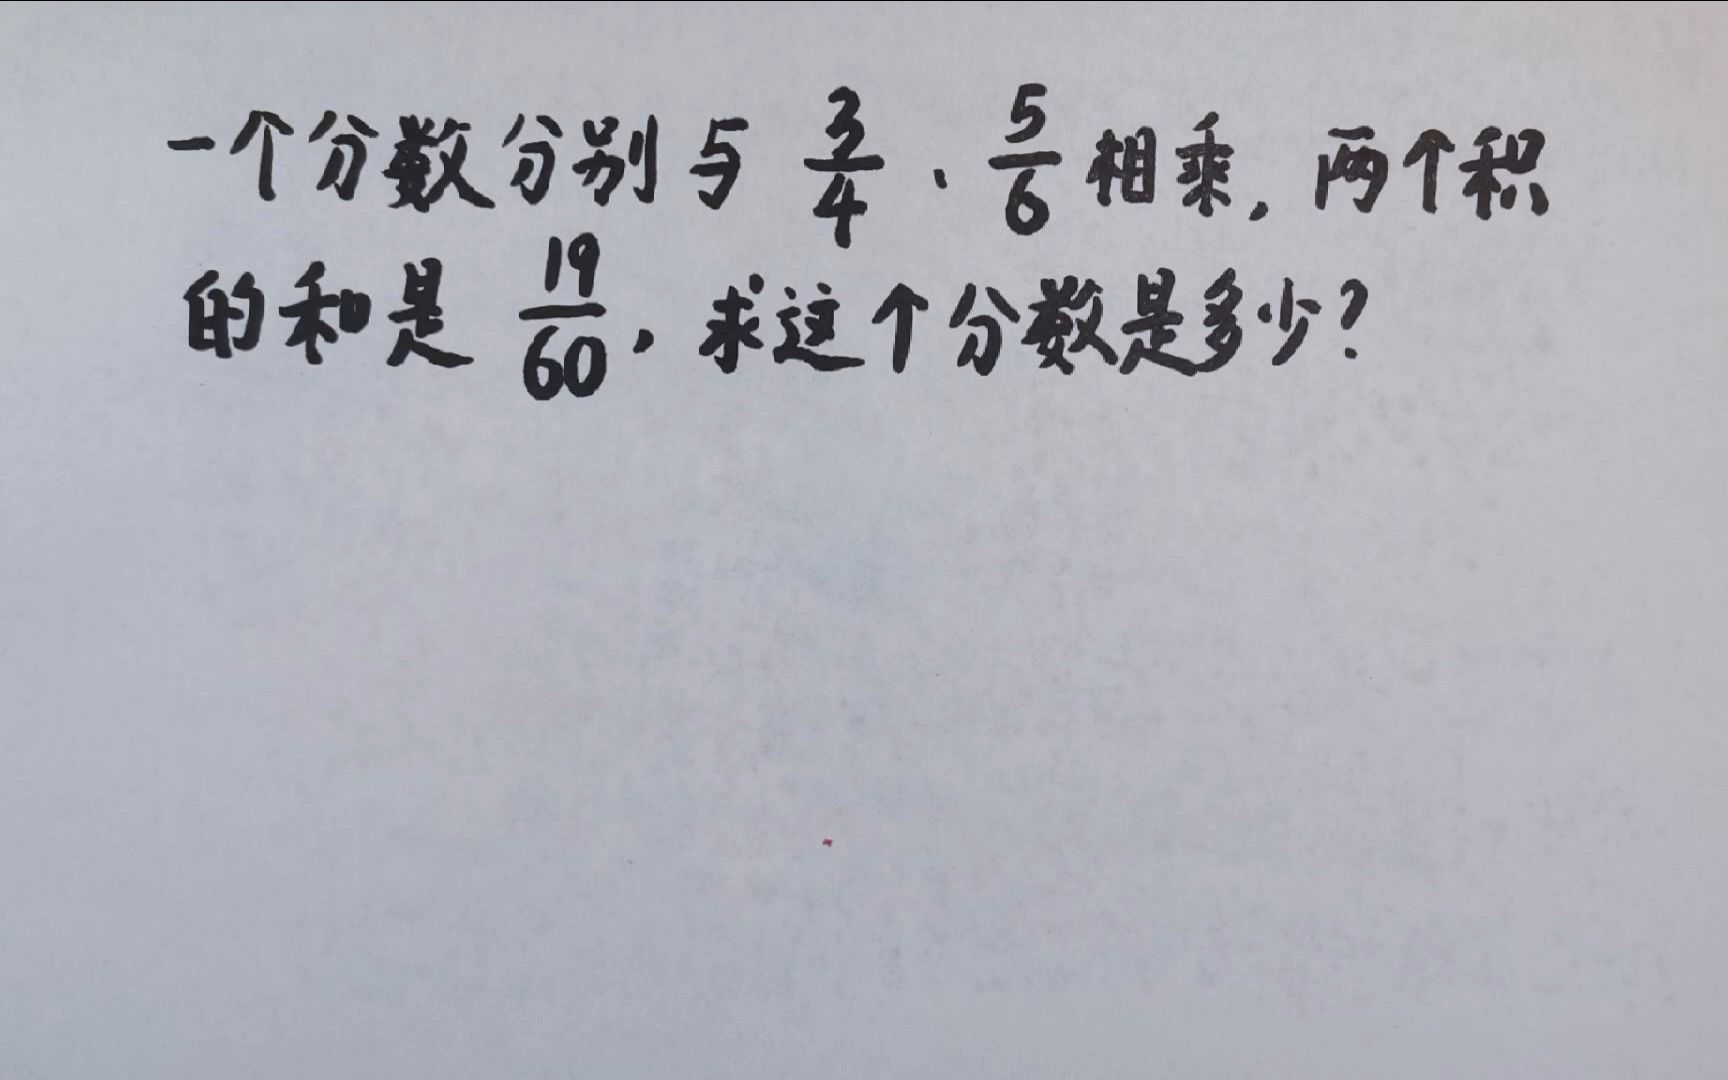 一个分数分别与 3/4、5/6 相乘，两个积
的和是 19/60，求这个分数是多少？